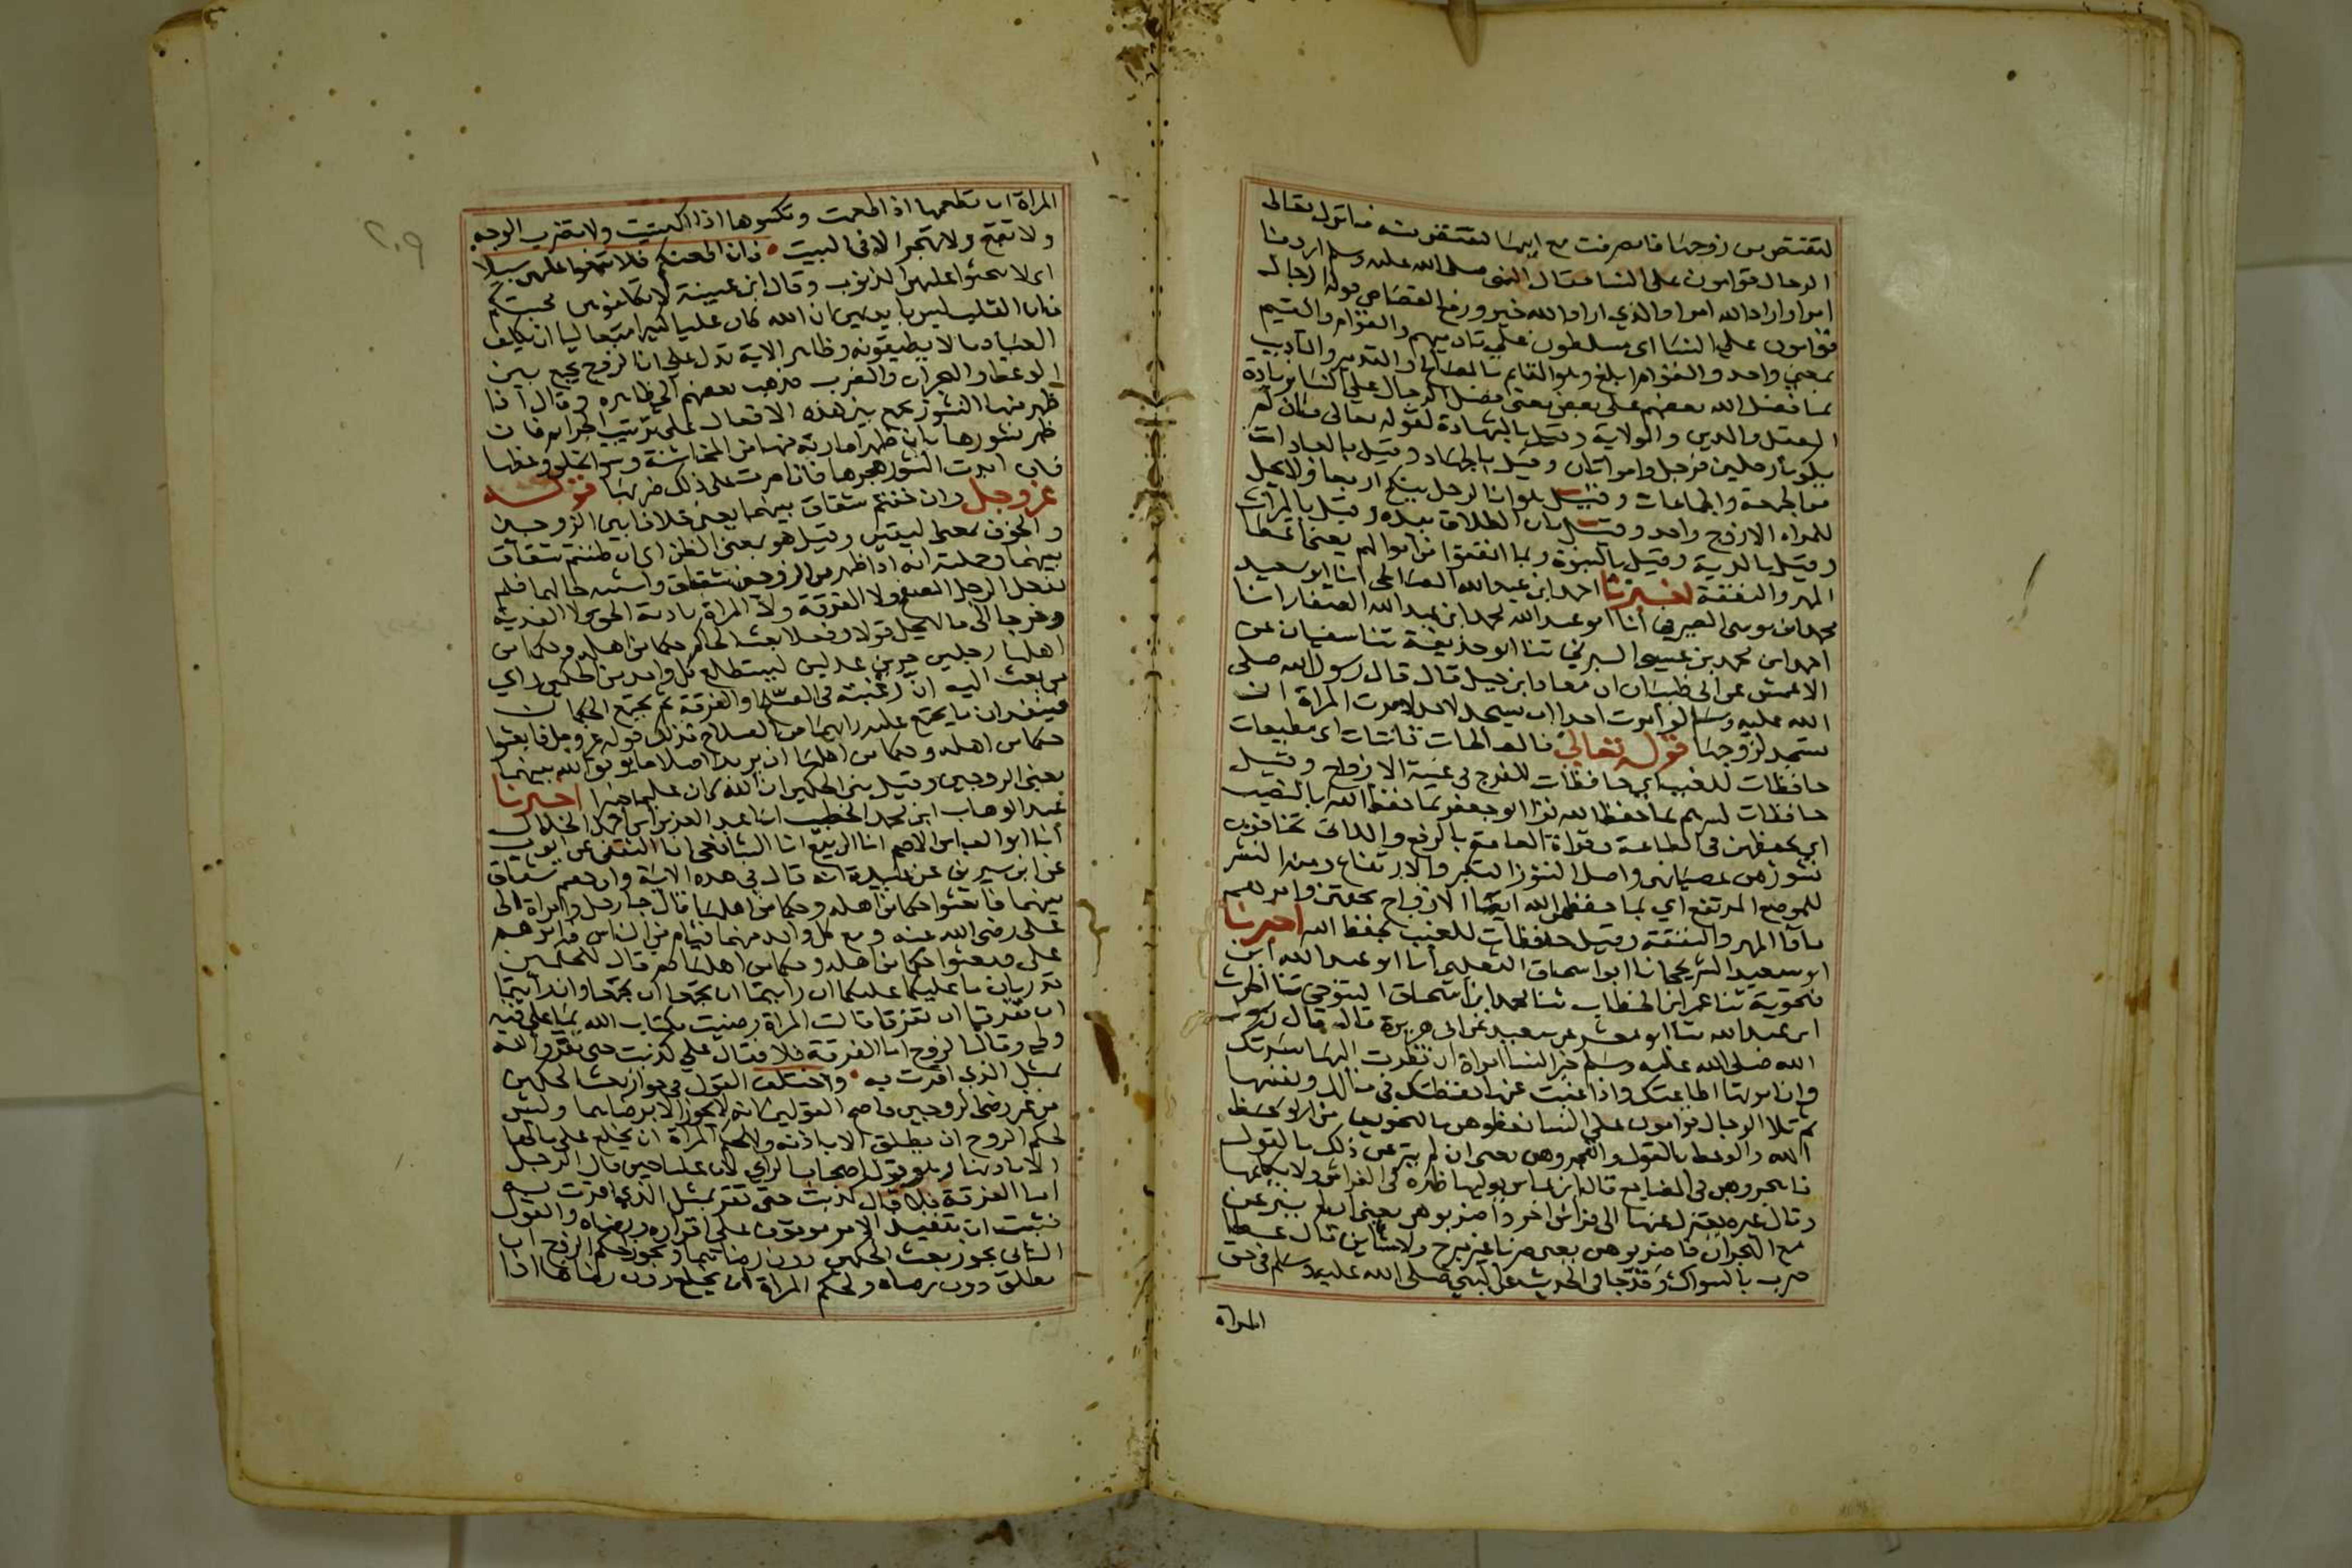 لتقتص من زوجها فانصرفت مع ابيها لتقتص منه فانزل الله تعالى
الرجال قوامون على النسا فقال النبى صلى الله عليه وسلم اردنا
امرا واراد الله امرا والذي اراد الله خير ورفع القصاص قوله الرجال
قوامون على النسا اى مسلطون على تاديبهم والقوام والقيم
بمعنى واحد والقوام ابلغ وهو القايم بالمصالح والتدبير والتاديب
بما فضل الله بعضهم على بعض يعنى فضل الرجال على النسا بزيادة
العقل والدين والولاية وقيل بالشهادة لقوله تعالى فان لم
يكونا رجلين فرجل وامراتان وقيل بالجهاد وقيل بالعبادات
من الجمعة والجماعات وقيل هو ان الرجل ينكح اربعا ولا يحل
للمراه الا زوج واحد وقيل بان الطلاق بيده وقيل بالميراث
وقيل بالدية وقيل بالنبوة وبما انفقوا من اموالهم يعنى اعطا
المهر والنفقة اخبرنا احمد ابن عبد الله الصالحى انا ابو سعيد
محمد ابن موسى الصيرفى أنا ابو عبد الله محمد ابن عبد الله الصفار انا
احمد ابن محمد بن عيسى البرتي ثنا ابو حذيفة ثنا سفيان عن
الاعمش عن ابى ظبيان ان معاذ ابن جبل قال قال رسول الله صلى
الله عليه وسلم لو أمرت احدا ان يسجد لاحد لامرت المراة ان
تسجد لزوجها قوله تعالى فالصالحات قانتات اى مطيعات
حافظات للغيب اي حافظات للفروج فى غيبة الازواج وقيل
حافظات لسرهم بما حفظ الله قرا ابو جعفر بما حفظ الله بالنصب
اى يحفظن فى الطاعة وقراة العامة بالرفع واللاتى تخافون
نشوزهن عصيانهن واصل النشوز التكبر والارتفاع ومنه النشز
للموضع المرتفع اي بما حفظهن الله ايصا الازواج بحقهن وامرهم
باداا المهر والنفقة وقيل حافظات للغيب بحفظ الله اخبرنا
ابو سعيد الشريحى انا ابو اسحاق الثعلبى أنا ابو عبد الله ابن
فنجويه ثنا عمر ابن الخطاب ثنا محمد ابن اسحاق المسوحي ثنا الحرث
ابن عبد الله ثنا ابو معشر عن سعيد عن ابى هريرة قال قال رسول
الله صلى الله عليه وسلم خير النسا امراة ان نظرت اليها سرتك
وان امرتها اطاعتك واذا غبت عنها حفظتك فى مالك ونفسها
ثم تلا الرجال قوامون على النسا فعظوهن بالتخويف من
الله والوعظ بالقول واهجروهن يعنى ان لم ينزعن ذلك بالقول
فاهجروهن فى المضاجع قال ابن عباس يوليها ظهره فى الفراش ولا يكلمها
وقال غيره يعتزل عنها الى فراش اخر واضربوهن يعنى ان لم ينزعن
مع الهجران فاضربوهن يعنى ضربا غير مبرح ولا شاين قال عطا
ضرب بالسواك وقد جا فى الحديث عن النبى صلى الله عليه وسلم فى حق
المراة
٢٠٩
المراة ان تطعمها اذا طعمت وتكسوها اذا اكتسيت ولا تضرب الوجه
ولا تقبح ولا تهجر الا فى البيت فان اطعنكم فلا تبغوا عليهن سبيلا
اى لا تجنوا عليهن الذنوب وقال ابن عيينة لا تكلفوهن محبتكم
فان القلب ليس بايديهن ان الله كان عليا كبيرا متعاليا ان يكلف
العباد ما لا يطيقونه وظاهر الاية تدل على ان الزوج يجمع بين
الوعظ والهجران والضرب فذهب بعضهم الى ظاهره وقال اذا
ظهر منها النشوز يجمع بين هذه الافعال على ترتيب الجرايم فان
ظهر نشورها بان ظهر امارته منها من المخاشنة وسو الخلق وعظها
فان ابدت النشوز هجرها فان اصرت على ذلك ضربها قوله
عز وجل وان خفتم شقاق بينهما يعنى خلافا بين الزوجين
والخوف بمعنى اليقين وقيل هو بمعنى الظن اى ان ظننتم شقاق
بينهما وجملته انه اذا ظهر من الزوجين شقاق واشتبه حالهما فلم
يفعل الرجل الصفح ولا الفرقة ولا المراة بادية الحق ولا الفدية
وخرجا الى ما لا يحل قولا وفعلا بعث الحاكم حكما من اهله وحكما من
اهلها رجلين حرين عدلين ليستطلع كل واحد من الحكمين راي
من بعث اليه ان رغبته فى الصلح او الفرقة ثم يجتمع الحكمان
فينفذان ما يجتمع عليه رايهما من الصلاح فذلك قوله عز وجل فابعثوا
حكما من اهله وحكما من اهلها ان يريدا اصلاحا يوفق الله بينهما
يعنى الزوجين وقيل بين الحكمين ان الله كان عليما خبيرا اخبرنا
عبد الوهاب ابن محمد الخطيب انا عبد العزيز ابن احمد الخلال
أنا ابو العباس الاصم انا الربيع انا الشافعى انا الثقفى عن ايوب
عن ابن سيرين عن عبيدة انه قال فى هذه الاية وان خفتم شقاق
بينهما فابعثوا حكما من اهله وحكما من اهلها قال جا رجل وامراة الى
على رضى الله عنه ومع كل واحد منهما فئام من الناس فامرهم
على فبعثوا حكما من اهله وحكما من اهلها ثم قال للحكمين
تدريان ما عليكما عليكما ان رايتما ان تجمعا ان تجمعا وان رأيتما
ان تفرقا ان تفرقا قالت المراة رضيت بكتاب الله بما على فيه
ولى وقال الزوج اما الفرقة فلا فقال علي كذبت حتى تقر والله
بمثل الذى اقرت به واختلف القول فى جواز بعث الحكمين
من غير رضى الزوجين فاصح القولين انه لا يجوز الا برضاهما وليس
لحكم الزوج ان يطلق الا باذنه ولا لحكم المراة ان يخلع على مالها
الا باذنها وهو قول اصحاب الراي لان عليا حين قال الرجل
اما الفرقة فلا قال كذبت حتى تقر بمثل الذى اقرت به
فثبت ان تنفيذ الامر موقوف على اقراره ورضاه والقول
الثانى يجوز بعث الحكمين دون رضاهما ويجوز لحكم الزوج ان
يطلق دون رضاه ولحكم المراة ان يخلع دون رضاها اذا